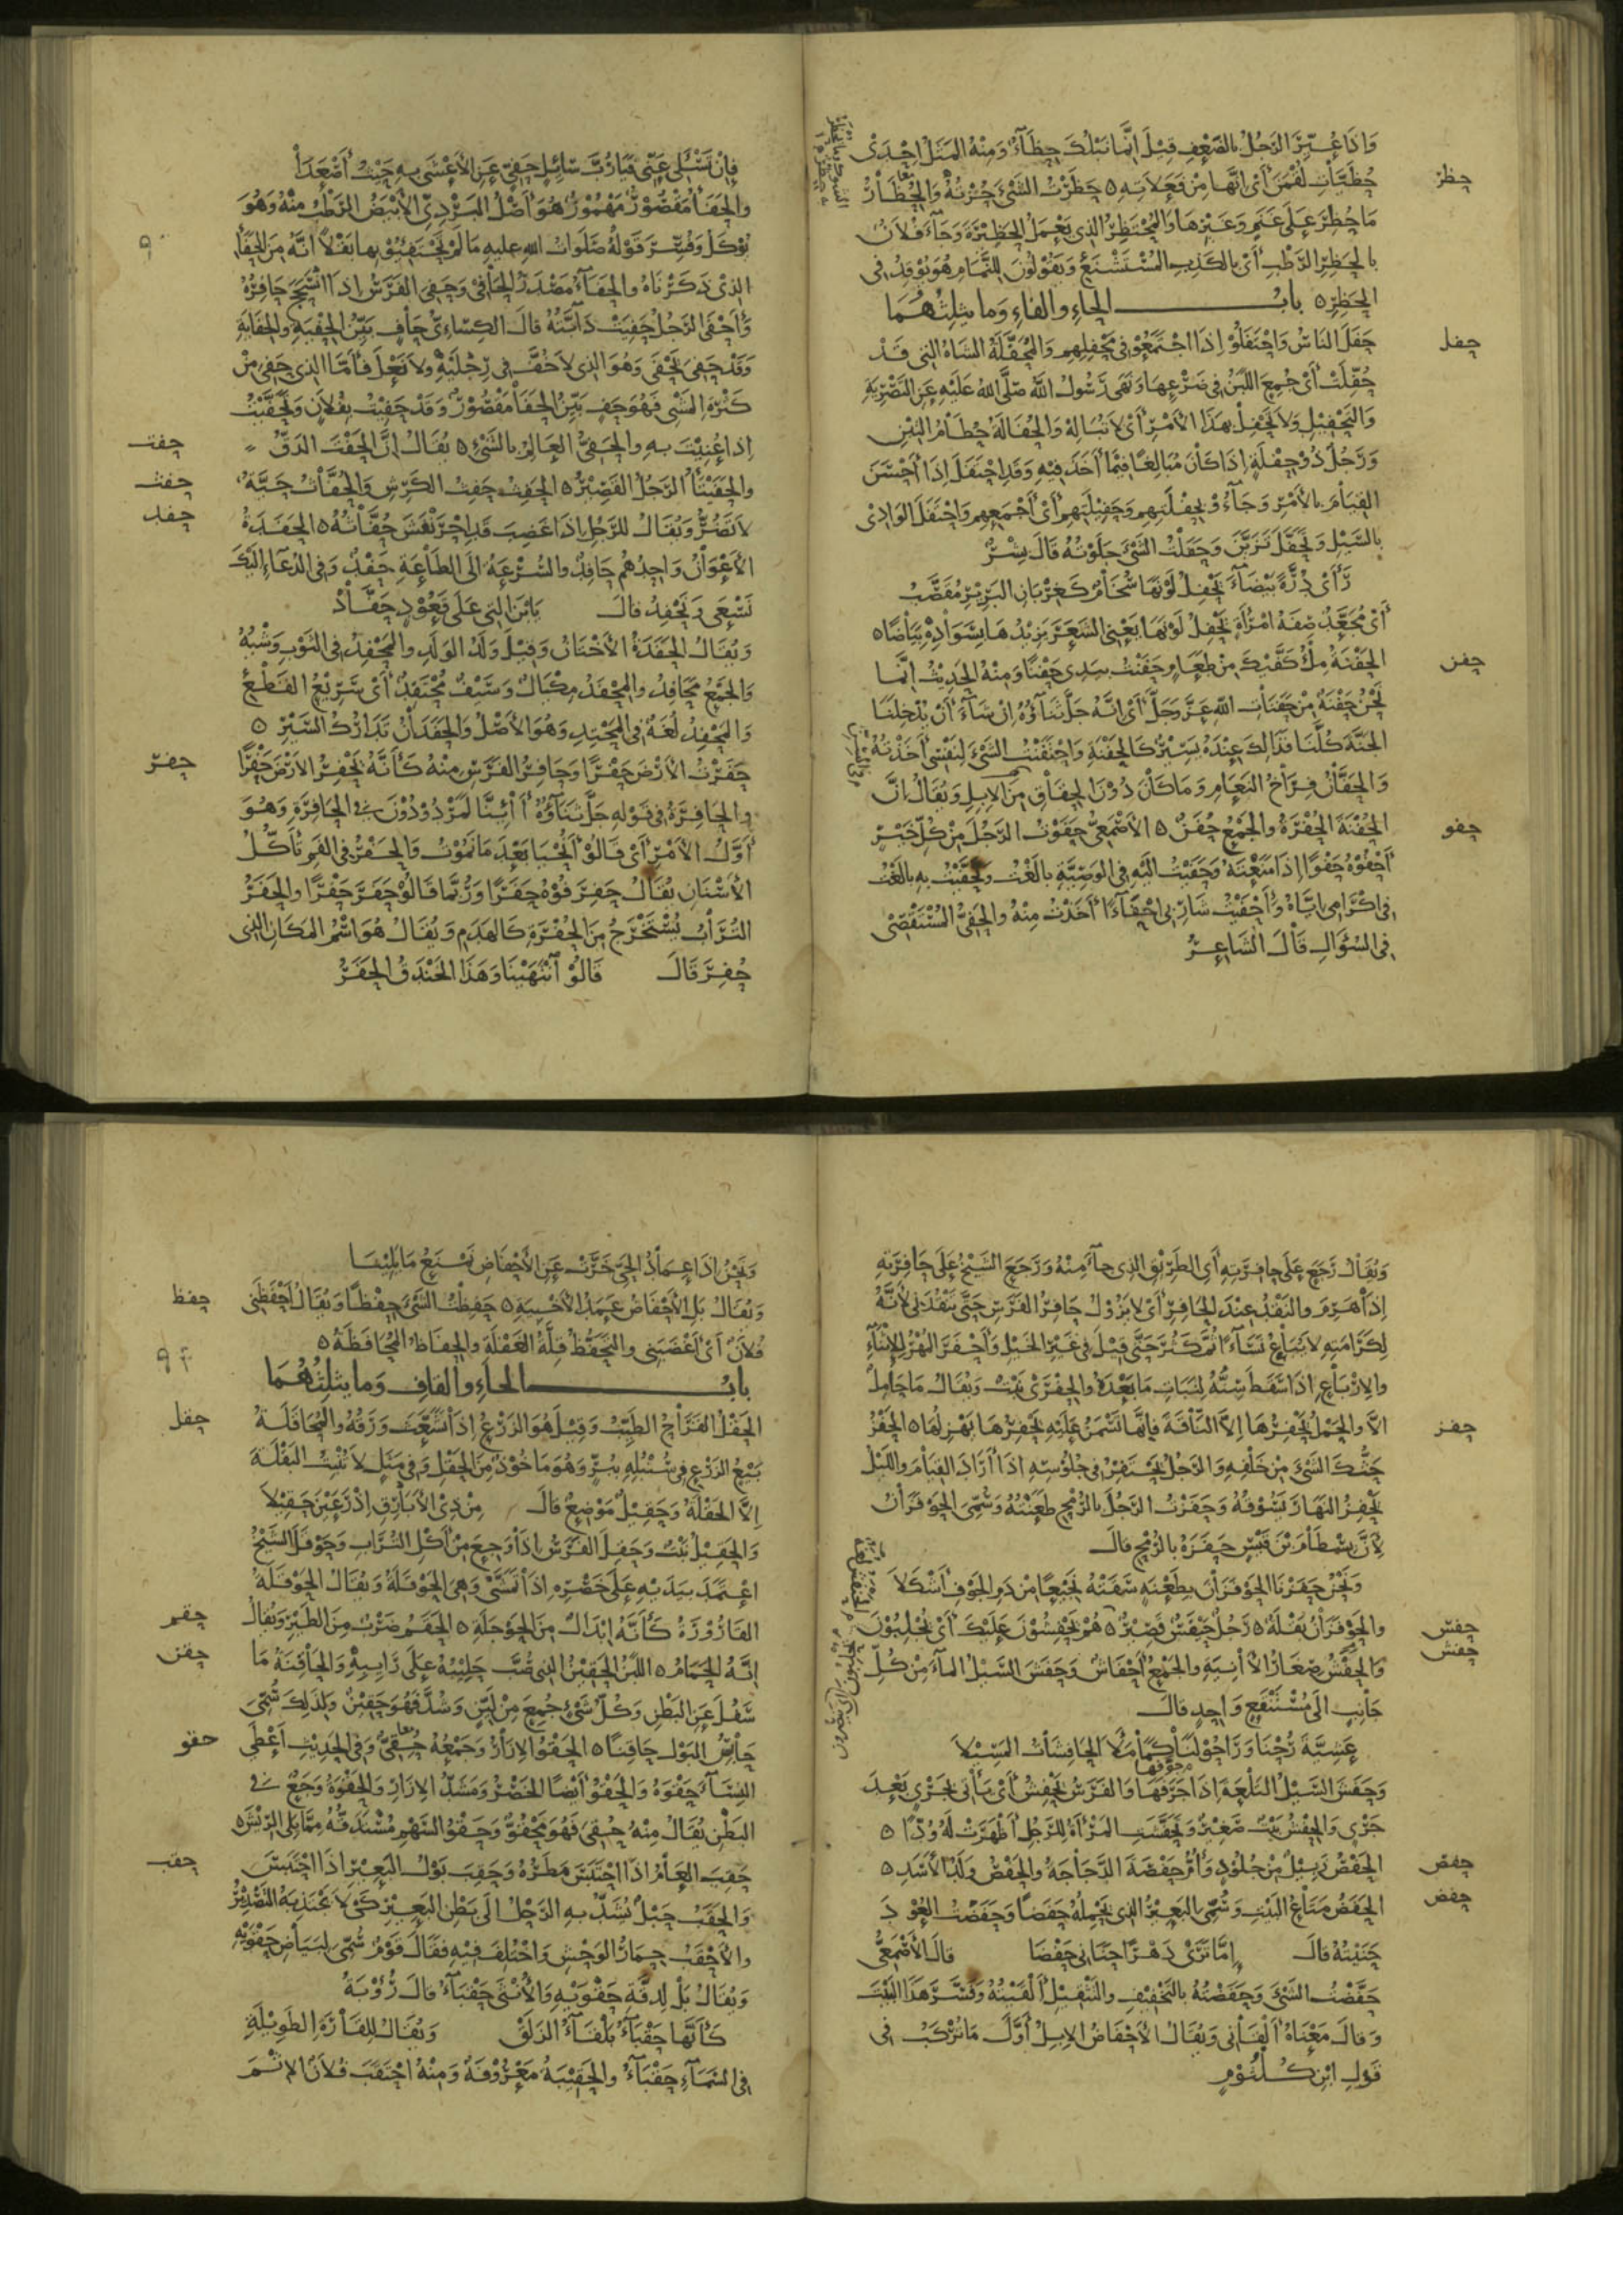 وَاِذَا عُيِّرَ الرَجُلُ بالضَّعْفِ قِيْلَ اِنَّمَا نَبْلُكَ حِظَآءٌ وَمِنْهُ المَثَلُ اِحْدَى
حُظَيَّاتِ لُقْمٰنَ أىْ اِنَّهَا مِنْ فَعَلاَتِهِ ه حَظَرْتُ الشَىْءَ حُزْتُهُ وَالحِظَارُ
مَا حُظِرَ عَلَى غَنَمٍ وَغَيْرِهَا وَالمُحْتَظِرُ الذِى يَعْمَلُ الحَظِيْرَةَ وَجَآءَ فُلاَنٌ
بالحَظِرِ الرَطْبِ أىْ بالكَذِبِ المُسْتَشْنَعِ وَيَقُوْلُوْنَ للنَّمَّامِ هُوَ يُوْقِدُ فى
الحَظِرِ ه بابُ الحاءِ والفاءِ وَما يثلِثُهُمَا
حَفَلَ النَاسُ وَاحْتَفَلُوْا اِذَا اجْتَمَعُوْا فى مَحْفِلِهِمِ وَالمُحَفَّلَةُ الشَاةُ التى قَدْ
حُفِّلَتْ أىْ جُمِعَ اللَبَنُ فى ضَرْعِهَا وَنَهَى رَسُولُ اللهِ صَلَّى اللهُ عَلَيْهِ عَنِ التَصْرِيَةِ
وَالتَحْفِيْلِ وَلاَ تَحْفِلْ بهَذَا الأمْرِ أىْ لاَ تُبَالِهْ وَالحُفَالَةُ حُطَامُ التِبْنِ
وَرَجُلٌ ذُوْ حَفْلَةٍ اِذَا كَانَ مُبَالِغًا فيْمَا أَخَذَ فيْهِ وَقَدِ احْتَفَلَ اِذَا أَحْسَنَ
القِيَامَ بالأمْرِ وَجَآءُوْا بحَفْلَتِهِمِ وَحَفِيْلَتِهِمِ أىْ أجْمَعِهِمِ وَاحْتَفَلَ الوَادِىْ
بالسَيْلِ وَتَحَفَّلَ تَزَيَّنَ وَحَفَلْتُ الشَىْءَ جَلَوْتُهُ قَالَ بِشْرٌ
رَأَىْ دُرَّةً بَيْضَآءَ يَحْفِلُ لَوْنَهَا سُخَامٌ كَغِرْبَانِ البَرِيْرِ مُقَصَّبُ
أىْ مُجَعَّدٌ صِفَةُ امْرَأَةٍ يَحْفِلُ لَوْنَهَا يَعْنِى الشَعَرَ يَزِيْدُهَا بِسَوَادِهِ بَيَاضًا ه
الحَفْنَةُ مِلْءُ كَفَّيْكَ مِنْ طَعَامٍ وَحَفَنْتُ بيَدِى حَفْنًا وَمِنْهُ الحَدِيْثُ اِنَّمَا
نَحْنُ حَفْنَةٌ مِنْ حَفَنَاتِ اللهِ عَزَّ وَجَلَّ أىْ اِنَّهُ جَلَّ ثَنَآؤُهُ اِنْ شَآءَ أنْ يُدْخِلَنَا
الجَنَّةَ كُلَّنَا فَذَالِكَ عِنْدَهُ يَسِيْرٌ كَالحَفْنَةِ وَاحْتَفَنْتُ الشَىْءَ لِنَفْسِى أخَذْتُهُ
وَالحَفَّانُ فِرَاخُ النَعَامِ وَمَا كَانَ دُوْنَ الحِقَاقِ مِنَ الاِبِلِ وَيُقَالُ اِنَّ
الحُفْنَةَ الحُفْرَةُ والجَمْعُ حُفَنٌ ه الأصْمَعِىُّ حَفَوْتُ الرَجُلَ مِنْ كُلِّ خَيْرٍ
أَحْفُوْهُ حَفْوًا اِذَا مَنَعْتَهُ وَحَفَيْتُ اِلَيْهِ فى الوَصِيَّةِ بالَغْتُ وَتَحَفَّيْتُ بِهِ بالَغْتُ
فى اكْرَامِى اِيَّاهُ وَأحْفَيْتُ شَارِبِى اِحْفَآءً أخَذْتُ مِنْهُ وَالحَفِىُّ المُسْتَقْصِى
فى السُؤَالِ قَالَ الشَاعِرُ
حظر
حفل
حفن
حفو
فاِنْ تَسْئَلِى عَنِّى فَيَارُبَّ سَائِلٍ حَفِىٍّ عَنِ الأعْشَى بِهِ حَيْثُ أصْعَدَا
والحَفَأُ مَقْصُوْرٌ مَهْمُوْزٌ هُوَ أصْلُ البَرْدِىِّ الأبْيَضُ الرَطْبُ مِنْهُ وَهُوَ
يُوْكَلُ وَفُسِّرَ قَوْلُهُ صَلَوَاتُ اللهِ عليهِ مَا لَمْ تَحْتَفِئُوْا بِهَا بَقْلاً اَنَّهُ مِنَ الحَفَاءِ
الذِىْ ذَكَرْنَاهُ والحَفَآءُ مَصْدَرُ الحَافِىْ وَحَفِىَ الفَرَسُ اِذَا انْسَحَجَ حَافِرُهُ
وَأحْفَى الرَجُلُ حَفِيَتْ دَابَّتُهُ قالَ الكِسَائِىُّ حَافٍ بَيِّنُ الحِفْيَةِ وَالحِفَايَةِ
وَقَدْ حَفِىَ يَحْفَى وَهُوَ الذِى لاَ خُفَّ فى رِجْلَيْهِ وَلاَ نَعْلَ فأمَّا الذِى حَفِىَ مِنْ
كَثْرَةِ المَشْىِ فَهُوَ حَفٍ بَيِّنُ الحَفَا مَقْصُوْرٌ وَقَدْ حَفِيْتُ بِفُلاَنٍ وَتَحَفَّيْتُ
اِذَا عُنِيْتَ بِهِ والحَفِىُّ العَالِمُ بالشَىْءِ ه يُقَالُ اِنَّ الحَفْتَ الدَقُّ
والحَفَيْتَأُ الرَجُلُ القَصِيْرُ ه الحَفِثُ حَفِثُ الكَرِشِ وَالحُفَّاثُ حَيَّةٌ
لاَ تَضُرُّ وَيُقَالُ للرَجُلِ اِذَا غَضِبَ قَدِ احْرَنْفَشَ حُفَّاثُهُ ه الحَفَدَةُ
الأَعْوَانُ وَاحِدُهُمْ حَافِدٌ والسُرْعَةُ اِلَى الطَاعَةِ حَفْدٌ وَفى الدُعَآءِ اِلَيْكَ
نَسْعَى وَنَحْفِدُ قالَ يَابْنَ التى عَلَى قَعُوْدٍ حَفَّادْ
وَيُقَالُ الحَفَدَةُ الأخْتَانُ وَقِيْلَ وَلَدُ الوَلَدِ والمَحْفِدُ فى الثَوْبِ وَشْيُهُ
وَالجَمْعُ مَحَافِدُ والمِحْفَدُ مِكْيَالٌ وَسَيْفٌ مُحْتَفِدٌ أىْ سَرِيْعُ القَطْعِ
وَالمَحْفِدُ لُغَةٌ فى المَحْتِدِ وَهُوَ الأصْلُ وَالحَفَدَانُ تَدَارُكُ السَيْرِ ه
حَفَرْتُ الأَرْضَ حَفْرًا وَحَافِرُ الفَرَسِ مِنْهُ كَأَنَّهُ يَحْفِرُ الأرْضَ حَفْرًا
والحَافِرَةُ فى قَوْلِهِ جَلَّ ثنَآؤُهُ أَاِنَّا لَمَرْدُوْدُوْنَ فِى الحَافِرَةِ وَهُوَ
أوَّلُ الأَمْرِ أىْ قالُوْا أَنُحْيَا بَعْدَ مَا نَمُوْتُ وَالحَفَرُ فى الفَمِ تَأَكُّلُ
الأسْنَانِ يُقَالُ حَفِرَ فُوْهُ حَفَرًا وَرُبَّمَا قَالُوْا حَفَرَ حَفْرًا وَالحَفَرُ
التُرَابُ يُسْتَخْرَجُ مِنَ الحُفْرَةِ كَالهَدَمِ وَيُقَالُ هُوَ اسْمُ المَكَانِ الذِى
حُفِرَ قَالَ قَالُوْا انْتَهَيْنَا وَهَذَا الخَنْدَقُ الحَفَرُ
حفت
حفث
حفد
حفر
وَيُقَالُ رَجَعَ عَلَى حافِرَتِهِ أىِ الطَرِيْقِ الذِى جآءَ مِنْهُ وَرَجَعَ الشَيْخُ عَلَى حَافِرَتِهِ
اِذَا هَرِمَ وَالنَقْدُ عِنْدَ الحَافِرِ أىْ لاَ يَزُوْلُ حَافِرُ الفَرَسِ حَتَّى يَنْقُدَنِى لأنَّهُ
لِكَرَامَتِهِ لاَ يُبَاعُ نَسَآءً ثُمَّ كَثُرَ حَتَّى قِيْلَ فى غَيْرِ الخَيْلِ وَأحْفَرَ المُهْرُ للاِثْنَآءِ
والاِرْبَاعِ اِذَا سَقَطَ سِنُّهُ لِنَبَاتِ مَا بَعْدَهُ والحِفْرَىْ نَبْتٌ وَيُقَالُ مَا حَامِلٌ
اِلاَّ وَالحَمْلُ يَحْفِرُهَا اِلاَّ النَاقَةَ فاِنَّهَا تَسْمَنُ عَلَيْهِ يَحْفِرُهَا يَهْزِلُهَا ه الحَفْزُ
حَثُّكَ الشَىْءَ مِنْ خَلْفِهِ وَالرَجُلُ يَحْتَفِزُ فى جُلُوْسِهِ اِذَا أرَادَ القِيَامَ وَاللَيْلُ
يَحْفِزُ النَهَارَ يَسُوْقُهُ وَحَفَزْتُ الرَجُلَ بالرُمْحِ طَعَنْتُهُ وَسُمِّىَ الحَوْفَزَانُ
لأنَّ بِسْطَامَ بْنَ قَيْسٍ حَفَزَهُ بالرُمْحِ قالَ
وَنَحْنُ حَفَزْنَا الحَوْفَزَانَ بِطَعْنَةٍ سَقَتْهُ نَجِيْعًا مِنْ دَمِ الجَوْفِ أشْكَلاَ
والحَوْفَزَانُ بَقْلَةٌ ه رَجُلٌ حَيْفَسٌ قَصِيْرٌ ه هُمْ يَحْفِشُوْنَ عَلَيْكَ أىْ يُجْلِبُوْنَ
وَالحِفْشُ صِغَارُ الآنِيَةِ والجَمْعُ أحْفَاشٌ وَحَفَشَ السَيْلُ المَآءَ مِنْ كُلِّ
جَانِبٍ اِلَى مُسْتَنْقَعٍ وَاحِدٍ قالَ
عَشِيَّةَ رُحْنَا وَرَاحُوْا لَنَا كَمَا مَلأَ الحَافِشَاتُ المَسِيْلاَ
وَحَفَشَ السَيْلُ التَلْعَةَ اِذَا جَرَفَهَا وَالفَرَسُ يَحْفِشُ أىْ يَأتِى بجَرْىٍ بَعْدَ
جَرْىٍ وَالحِفْشُ بَيْتٌ صَغِيْرٌ وَتَحَفَّشَتِ المَرْأَةُ لِلرَجُلِ أظْهَرَتْ لَهُ وُدًّا ه
الحَفْصُ زَبِيْلٌ مِنْ جُلُوْدٍ وَأُمُّ حَفْصَةَ الدَجَاجَةُ وَالحَفْصُ وَلَدُ الأَسَدِ ه
الحَفَضُ مَتَاعُ البَيْتِ وَسُمِّىَ البَعِيْرُ الذِى يَحْمِلُهُ حَفَضًا وَحَفَضْتُ العُوْدَ
حَنَيْتُهُ قالَ اِمَّا تَرَىْ دَهْرًا حَنَانِى حَفْضَا قالَ الأصْمَعِىُّ
حَفَّضْتُ الشَىْءَ وَحَفَضْتُهُ بالتَخْفِيْفِ وَالتَثْقِيْلِ ألْقَيْتُهُ وَفَسَّرَ هَذَا البَيْتَ
وَقالَ مَعْنَاهُ ألْقَانِى وَيُقَالُ الأحْفَاضُ الاِبِلُ أوَّلَ مَا تُرْكَبُ فى
قَوْلِ ابْنِ كُلْثُوْمٍ
حفز
حفس
حفش
حفص
حفض
وَنَحْنُ اِذَا عِمَادُ الحَىِّ خَرَّتْ عَنِ الأَحْفَاضِ نَمْنَعُ مَا يَلِيْنَا
وَيُقَالُ بَلِ الأحْفَاضُ عَمَدُ الأَخْبِيَةِ ه حَفِظْتُ الشَىْءَ حِفْظًا وَيُقَالُ أَحْفَظَنِى
فُلاَنٌ أىْ أغْضَبَنِى والتَحَفُّظُ قِلَّةُ الغَفْلَةِ والحِفَاظُ المُحَافَظَةُ ه
بابُ الحَاءِ والقافِ وَما يثلِثُهُمَا
الحَقْلُ القَرَاحُ الطَيِّبُ وَقِيْلَ هُوَ الزَرْعُ اِذَا تَشَعَّبَ وَرَقُهُ والمُحَاقَلَةُ
بَيْعُ الزَرْعِ فى سُنْبُلِهِ ببُرٍّ وَهُوَ مَاخُوْذٌ مِنَ الحَقْلِ وَفى مَثَلٍ لاَ تُنْبِتُ البَقْلَةَ
اِلاَّ الحَقْلَةُ وَحَقِيْلٌ مَوْضِعٌ قالَ مِنْ ذِى الأَبَارِقِ اِذْ رَعَيْنَ حَقِيْلاَ
وَالحَقِيْلُ نَبْتٌ وَحَقِلَ الفَرَسُ اِذَا وَجِعَ مِنْ أكْلِ التُرَابِ وَحَوْقَلَ الشَيْخُ
اعْتَمَدَ بيَدَيْهِ عَلَى خَصْرِهِ اِذَا تَمَشَّى وَهِىَ الحَوْقَلَةُ وَيُقَالُ الحَوْقَلَةُ
القَارُوْرَةُ كَأَنَّهُ اِبْدَالٌ مِنَ الحَوْجَلَةِ ه الحَقَمُ ضَرْبٌ مِنَ الطَيْرِ وَيُقَالُ
اِنَّهُ الحَمَامُ ه اللَبَنُ الحَقِيْنُ الذِى صُبَّ حَلِيْبُهُ عَلَى رَائِبِهِ وَالحَاقِنَةُ مَا
سَفُلَ عَنِ البَطْنِ وَكُلُّ شَىْءٍ جُمِعَ مِنْ لَبَنٍ وَشُدَّ فَهُوَ حَقِيْنٌ وَلِذَلِكَ سُمِّىَ
حَابِسُ البَوْلِ حَاقِنًا ه الحَقْوُ الاِزَارُ وَجَمْعُهُ حُقِىٌّ وَفى الحَدِيْثِ أعْطَى
النِسَآءَ حَقْوَهُ وَالحَقْوُ أيْضًا الخَصْرُ وَمَشَدُّ الاِزَارِ وَالحَقْوَةُ وَجَعٌ فِى
البَطْنِ يُقَالُ مِنْهُ حُقِىَ فَهُوَ مَحْقُوٌّ وَحَقْوُ السَهْمِ مُسْتَدَقُّهُ مِمَّا يَلِى الرِيْشَ ه
حَقِبَ العَامُ اِذَا احْتَبَسَ مَطَرُهُ وَحَقِبَ بَوْلُ البَعِيْرِ اِذَا احْتَبَسَ
وَالحَقَبُ حَبْلٌ يُشَدُّ بِهِ الرَحْلُ اِلَى بَطْنِ البَعِيْرِ كَىْ لاَ يَجْتَذِبَهُ التَصْدِيْرُ
والأحْقَبُ حِمَارُ الوَحْشِ وَاخْتُلِفَ فيْهِ فقَالَ قَوْمٌ سُمِّىَ لِبَيَاضِ حَقْوَيْهِ
وَيُقَالُ بَلْ لِدِقَّةِ حَقْوَيْهِ وَالأُنْثَى حَقْبَآءُ قالَ رُؤْبَةُ
كَأَنَّهَا حَقْبَآءُ بَلْقَآءُ الزَلَقْ وَيُقَالُ لِلقَارَةِ الطَوِيْلَةِ
فى السَمَآءِ حَقْبَآءُ وَالحَقِيْبَةُ مَعْرُوْفَةٌ وَمِنْهُ احْتَقَبَ فُلاَنٌ الاِثْمَ
حفظ
حقل
حقم
حقن
حقو
حقب